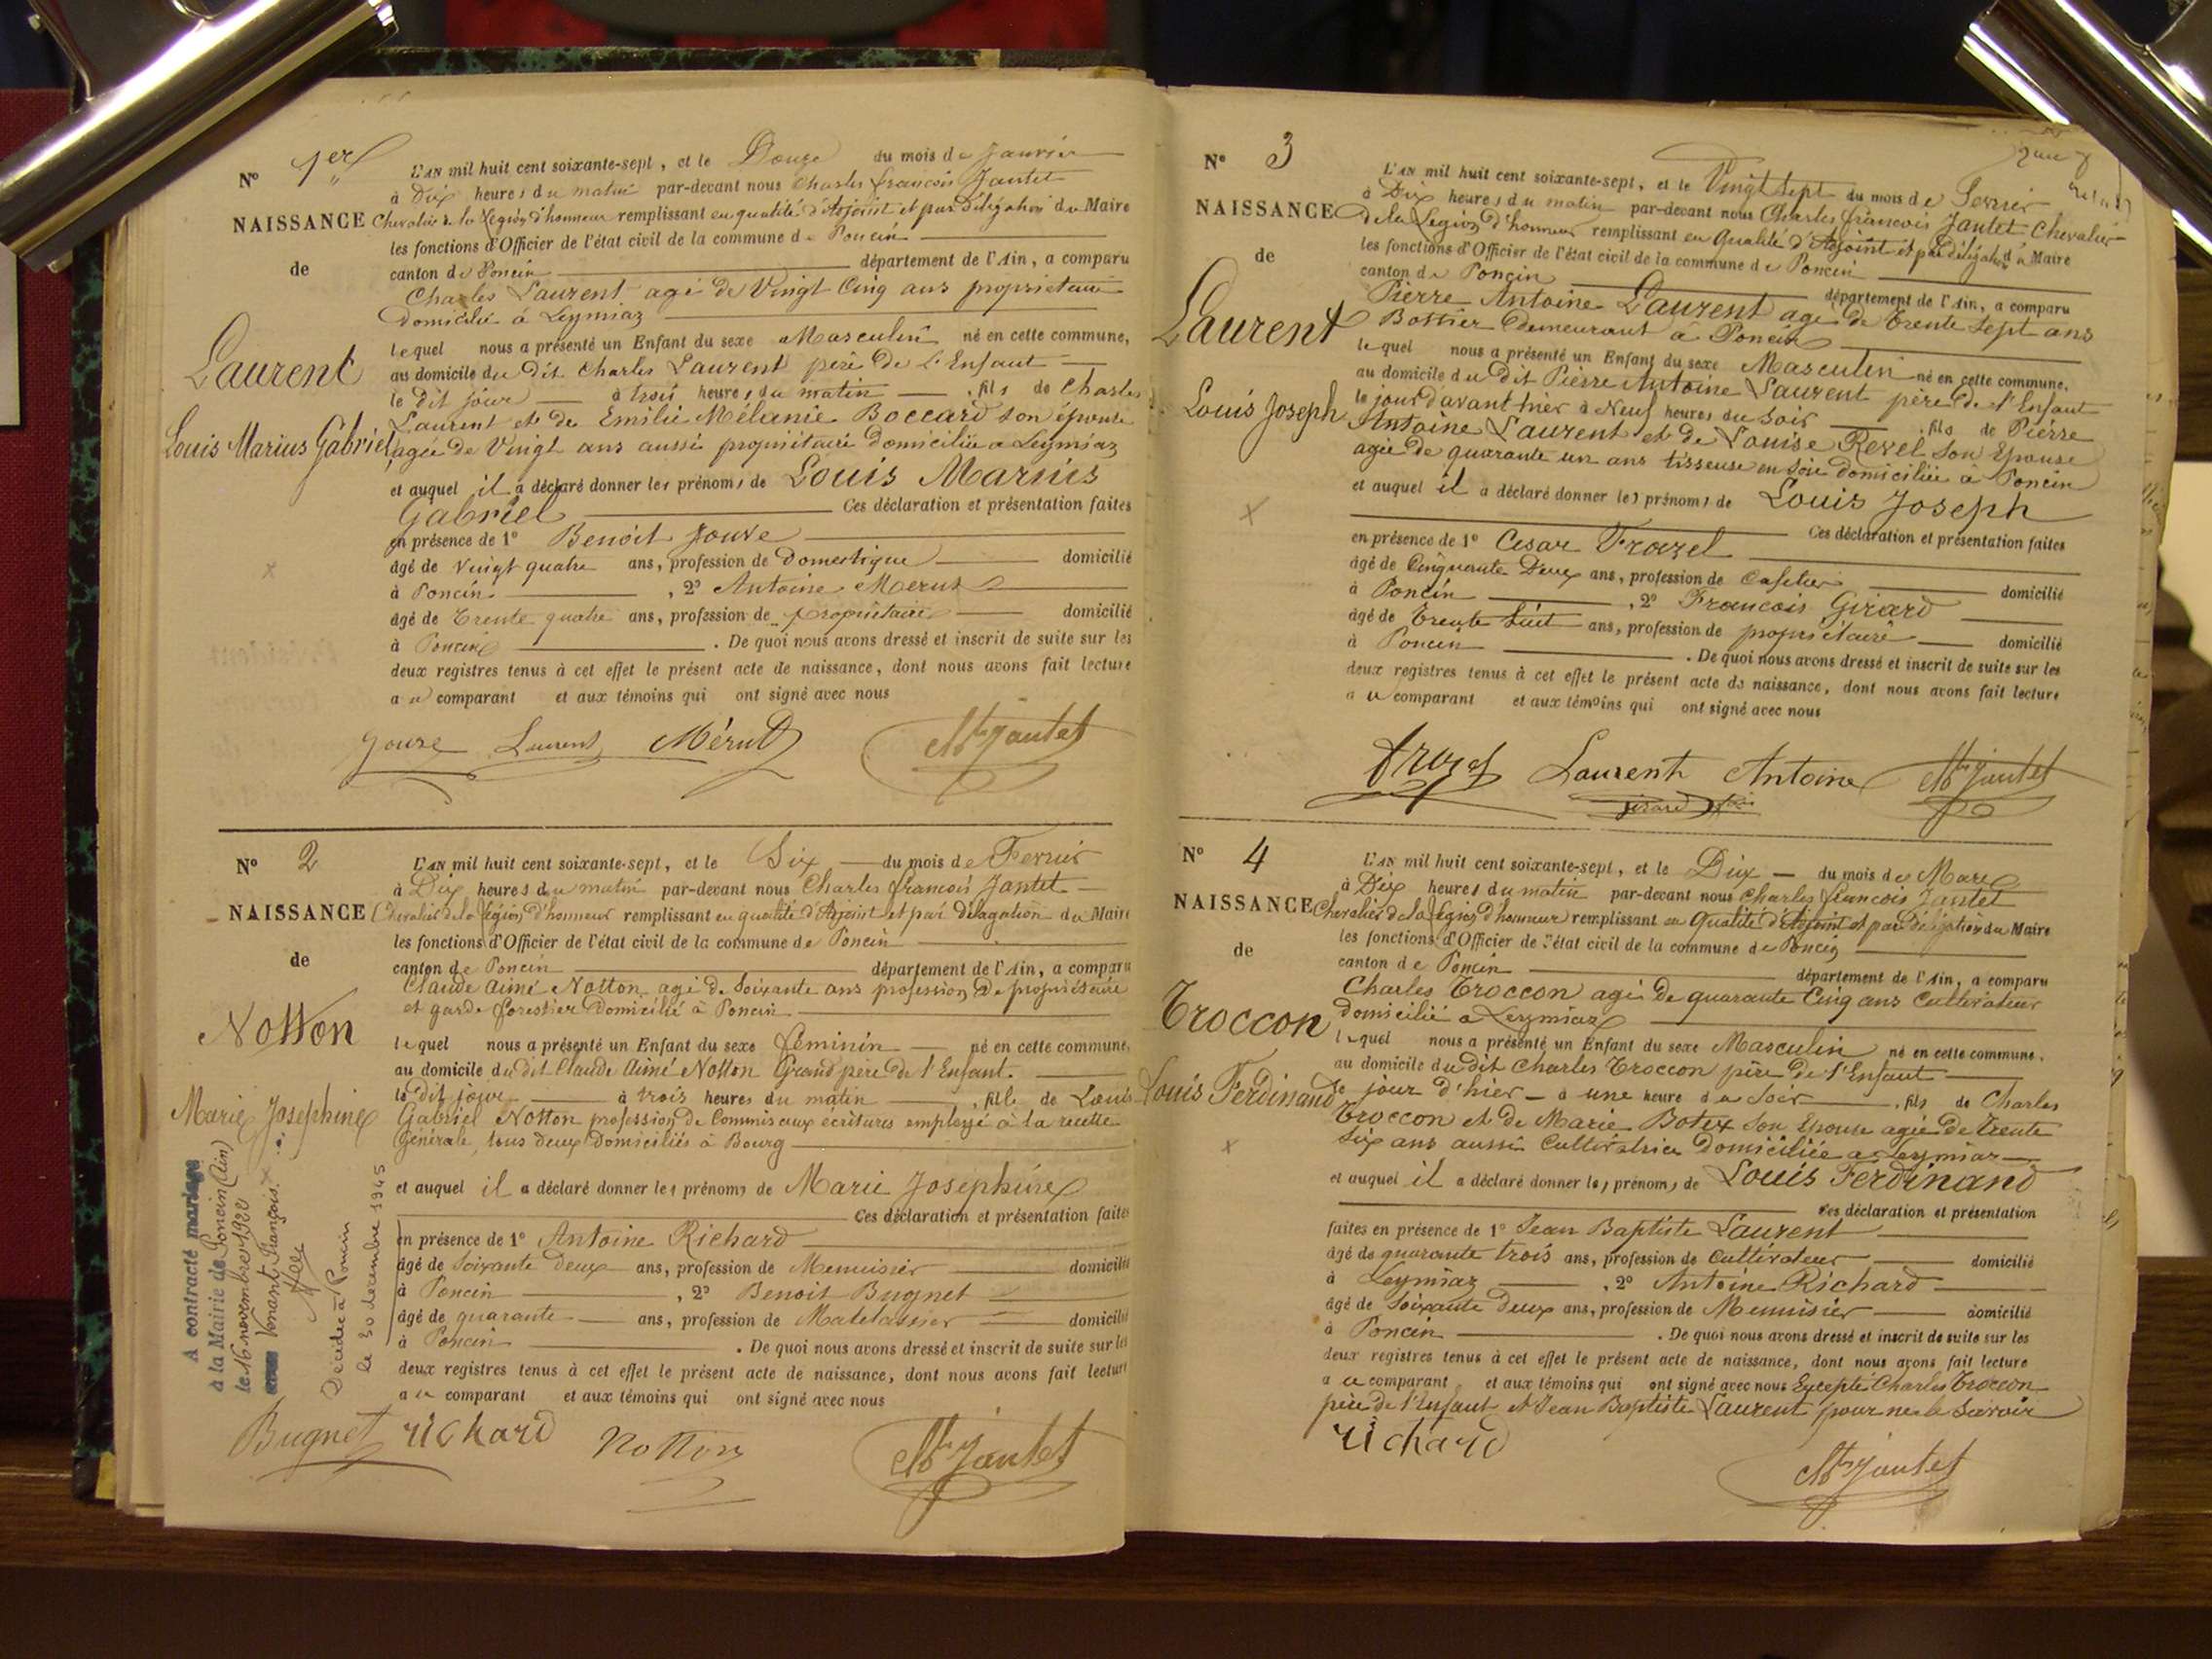 N° 1er
NAISSANCE
de
Laurent
Louis Marius Gabriel
L'AN mil huit cent soixante-sept, et le Douze du mois de Janvier
à Dix heures du matin par-devant nous Charles François Jantet
Chevalier de la Légion d'honneur remplissant en qualité d'Adjoint et par délégation du Maire
les fonctions d'Officier de l'état civil de la commune de Poncin
canton de Poncin département de l'Ain, a comparu
Charles Laurent agé de Vingt Cinq ans propriétaire
Domicilié à Leymiaz
lequel nous a présenté un Enfant du sexe Masculin né en cette commune,
au domicile du dit Charles Laurent père de l'Enfant
le dit jour à trois heures du matin, fils de Charles
Laurent et de Emilie Mélanie Boccard son épouse
agée de Vingt ans aussi propriétaire domiciliée a Leymiaz
et auquel il a déclaré donner les prénoms de Louis Marius
Gabriel Ces déclaration et présentation faites
en présence de 1° Benoit Jouve
âgé de Vingt quatre ans, profession de Domestique domicilié
à Poncin, 2° Antoine Merut
âgé de Trente quatre ans, profession de propriétaire domicilié
à Poncin. De quoi nous avons dressé et inscrit de suite sur les
deux registres tenus à cet effet le présent acte de naissance, dont nous avons fait lecture
au comparant et aux témoins qui ont signé avec nous
Jouve Laurent Mérut Jantet
N° 2
NAISSANCE
de
Notton
Marie Josephine
A contracté mariage
à la Mairie de Poncin (Ain)
le 16 novembre 1922
Vonant François
Décédée à Poncin
le 30 decembre 1945
L'AN mil huit cent soixante-sept, et le Six du mois de Fevrier
à Dix heures du matin par-devant nous Charles François Jantet
Chevalier de la Légion d'honneur remplissant en qualité d'Adjoint et par délagation du Maire
les fonctions d'Officier de l'état civil de la commune de Poncin
canton de Poncin département de l'Ain, a comparu
Claude Aimé Notton agé de Soixante ans profession de propriétaire
et garde forestier Domicilié à Poncin
lequel nous a présenté un Enfant du sexe féminin né en cette commune,
au domicile du dit Claude Aimé Notton Grand père de l'Enfant.
le dit jour à trois heures du matin, fille de Louis
Gabriel Notton profession de Commis aux écritures employé à la recette
Générale, tous deux Domiciliés à Bourg
et auquel il a déclaré donner les prénoms de Marie Josephine
Ces déclaration et présentation faites
en présence de 1° Antoine Richard
âgé de Soixante Deux ans, profession de Menuisier domicilié
à Poncin, 2° Benoit Bugnet
âgé de quarante ans, profession de Matelassier domicilié
à Poncin. De quoi nous avons dressé et inscrit de suite sur les
deux registres tenus à cet effet le présent acte de naissance, dont nous avons fait lecture
au comparant et aux témoins qui ont signé avec nous
Bugnet richard Notton Jantet
N° 3
NAISSANCE
de
Laurent
Louis Joseph
L'AN mil huit cent soixante-sept, et le Vingt Sept du mois de Fevrier
à Dix heures du matin par-devant nous Charles François Jantet Chevalier
de la Légion d'honneur remplissant en Qualité d'Adjoint et par délégation du Maire
les fonctions d'Officier de l'état civil de la commune de Poncin
canton de Poncin département de l'Ain, a comparu
Pierre Antoine Laurent agé de Trente Sept ans
Bottier Demeurant à Poncin
lequel nous a présenté un Enfant du sexe Masculin né en cette commune,
au domicile du dit Pierre Antoine Laurent père de l'Enfant
le jour d'avant hier à Neuf heures du Soir, fils de Pierre
Antoine Laurent et de Louise Revel son Epouse
agée de quarante un ans tisseuse en Soie domiciliée à Poncin
et auquel il a déclaré donner les prénoms de Louis Joseph
Ces déclaration et présentation faites
en présence de 1° Cesar
âgé de Cinquante Deux ans, profession de Cafetier domicilié
à Poncin, 2° François Girard
âgé de Trente huit ans, profession de propriétaire domicilié
à Poncin. De quoi nous avons dressé et inscrit de suite sur les
deux registres tenus à cet effet le présent acte de naissance, dont nous avons fait lecture
au comparant et aux témoins qui ont signé avec nous
Laurent Antoine Jantet
girard
N° 4
NAISSANCE
de
Troccon
Louis Ferdinand
L'AN mil huit cent soixante-sept, et le Dix du mois de Mars
à Dix heures du matin par-devant nous Charles François Jantet
Chevalier de la Légion d'honneur remplissant en Qualité d'Adjoint et par délégation du Maire
les fonctions d'Officier de l'état civil de la commune de Poncin
canton de Poncin département de l'Ain, a comparu
Charles Troccon agé de quarante Cinq ans Cultivateur
domicilié a Leymiaz
lequel nous a présenté un Enfant du sexe Masculin né en cette commune,
au domicile du dit Charles Troccon père de l'Enfant
le jour d'hier à une heure du Soir, fils de Charles
Troccon et de Marie Botex son Epouse agée de Trente
Six ans aussi Cultivatrice Domiciliée a Leymiaz
et auquel il a déclaré donner les prénoms de Louis Ferdinand
Ces déclaration et présentation
faites en présence de 1° Jean Baptiste Laurent
âgé de quarante trois ans, profession de Cultivateur domicilié
à Leymiaz, 2° Antoine Richard
âgé de Soixante Deux ans, profession de Menuisier domicilié
à Poncin. De quoi nous avons dressé et inscrit de suite sur les
deux registres tenus à cet effet le présent acte de naissance, dont nous avons fait lecture
au comparant et aux témoins qui ont signé avec nous Excepté Charles Troccon
père de l'Enfant et Jean Baptiste Laurent pour ne le Savoir
richard Jantet